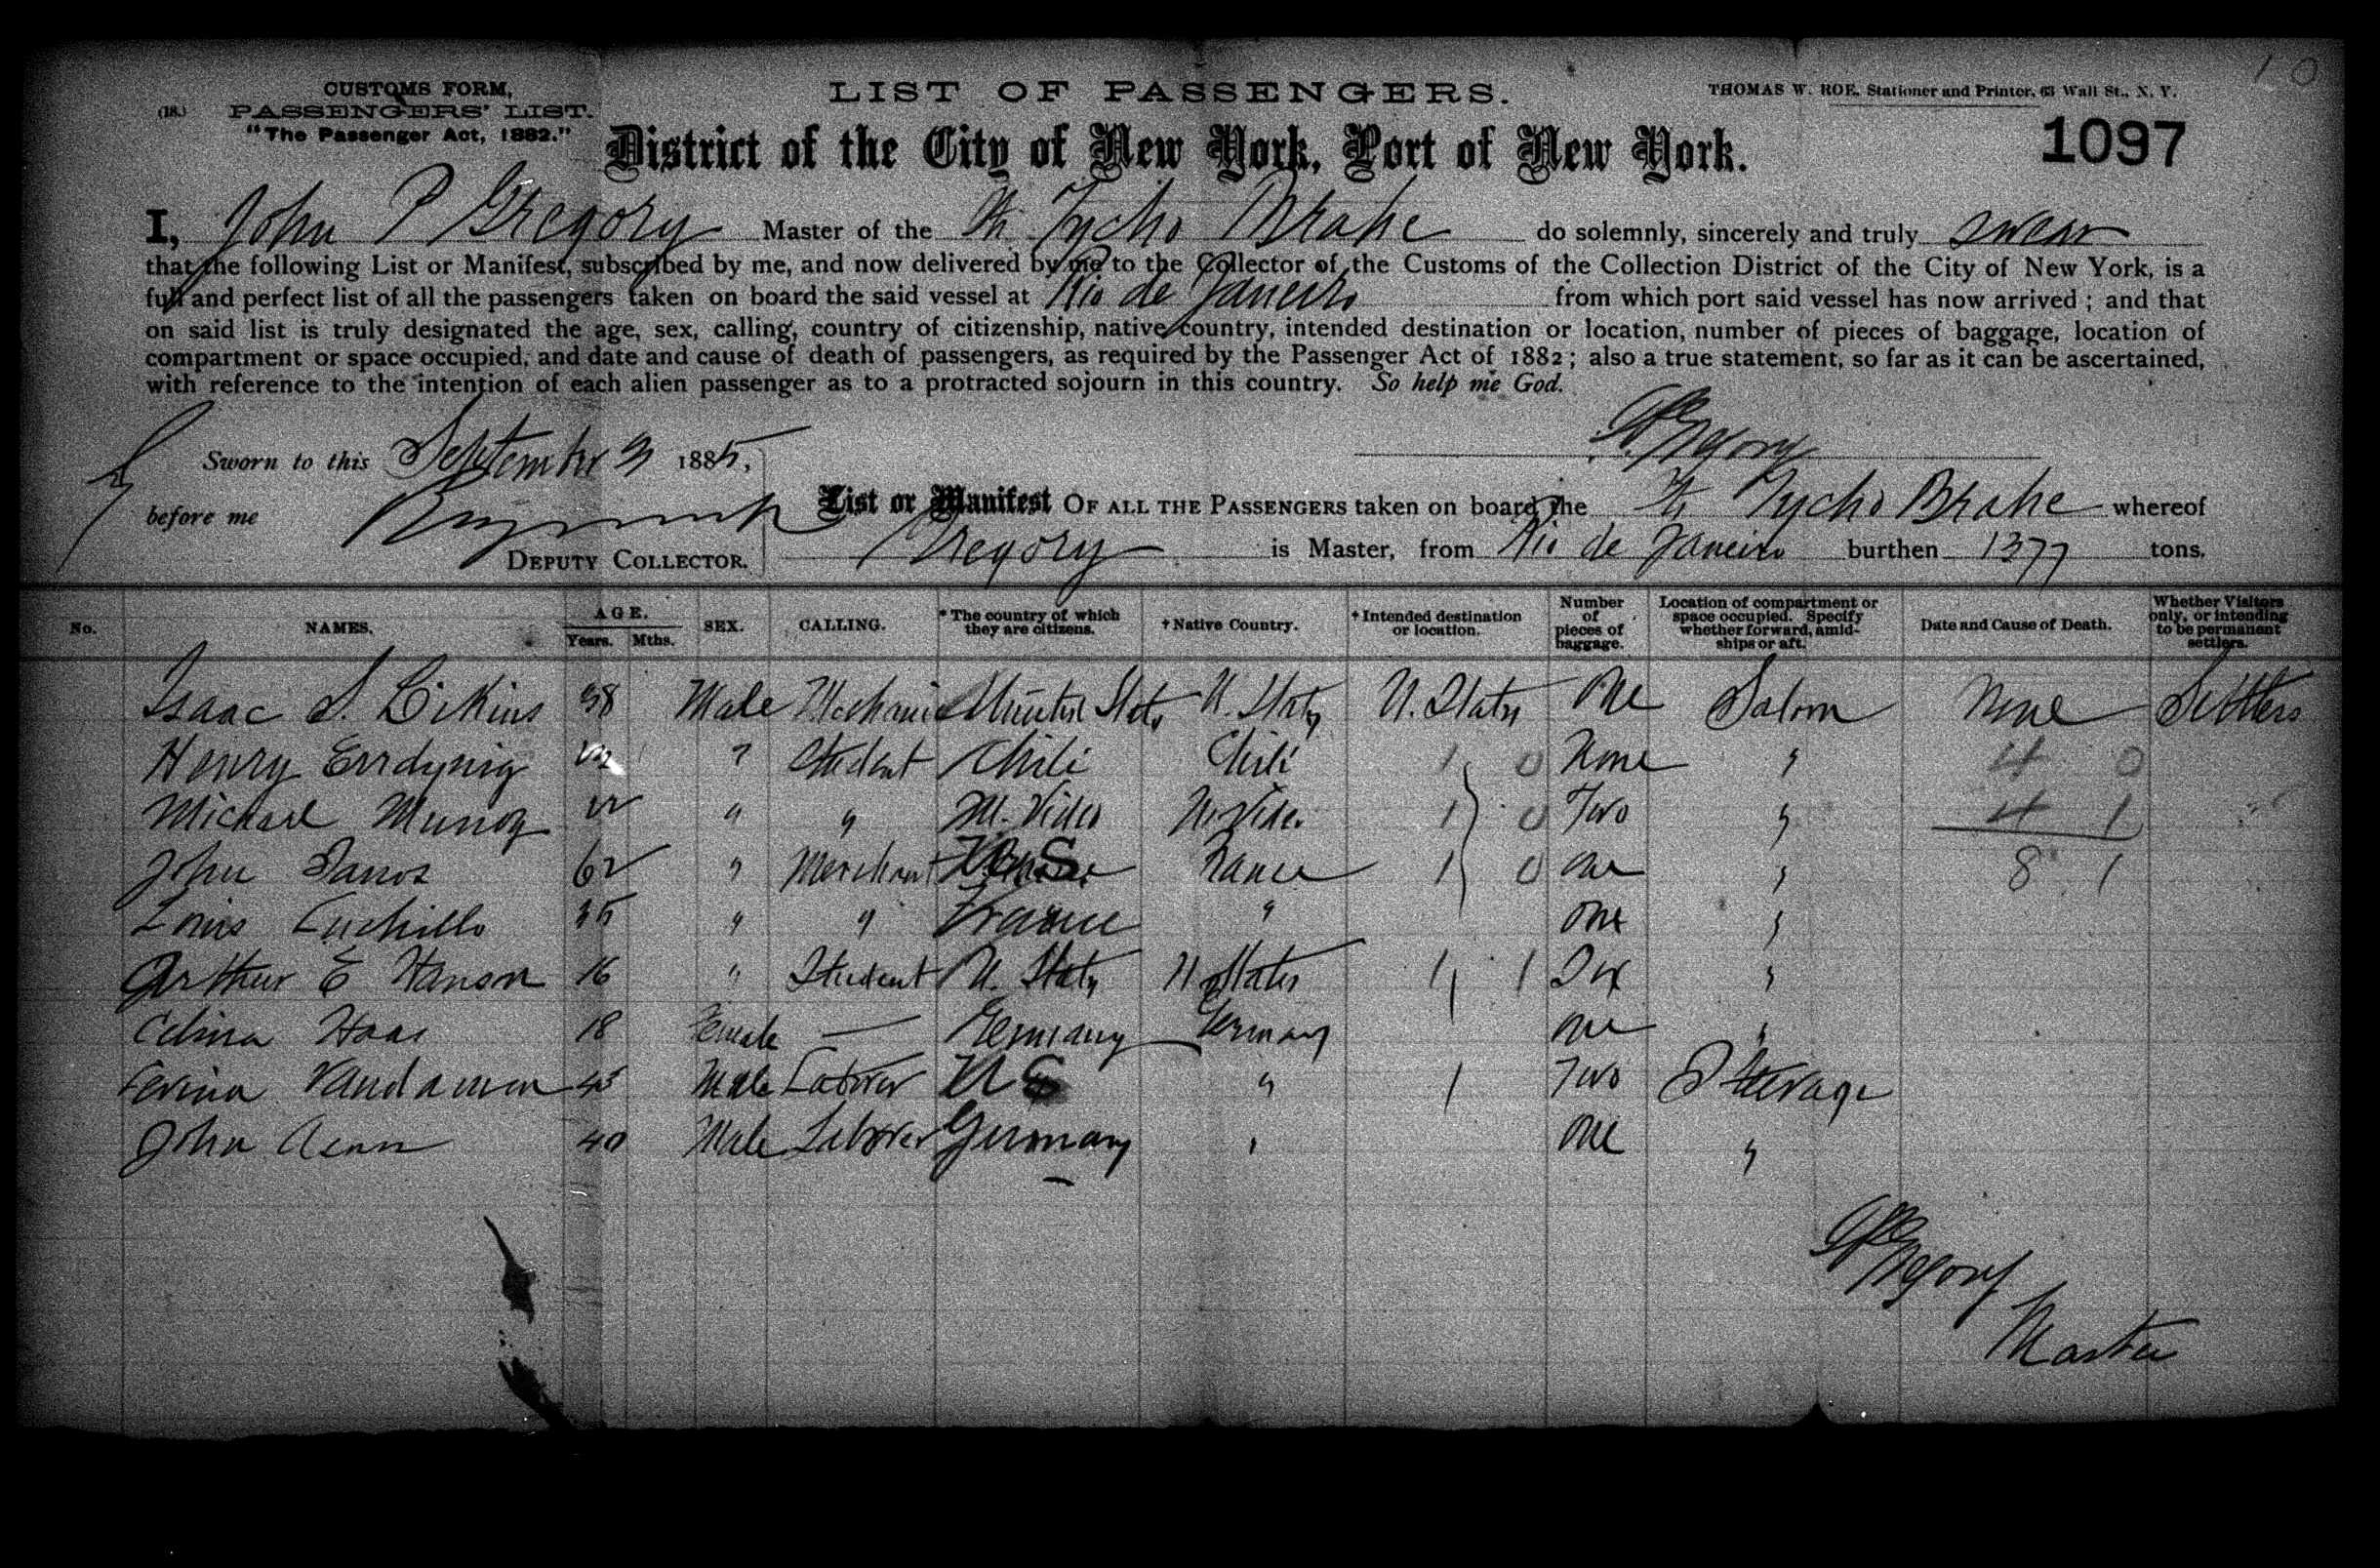 CUSTOMS FORM,
(18.) PASSENGERS' LIST.
"The Passenger Act, 1882."
LIST OF PASSENGERS.
THOMAS W. ROE, Stationer and Printer, 63 Wall St., N. Y.
10
District of the City of New York, Port of New York.
1097
I, John P Gregory Master of the Tycho Brahe do solemnly, sincerely and truly swear
that the following List or Manifest, subscribed by me, and now delivered by me to the Collector of the Customs of the Collection District of the City of New York, is a
full and perfect list of all the passengers taken on board the said vessel at Rio de Janeiro from which port said vessel has now arrived; and that
on said list is truly designated the age, sex, calling, country of citizenship, native country, intended destination or location, number of pieces of baggage, location of
compartment or space occupied, and date and cause of death of passengers, as required by the Passenger Act of 1882; also a true statement, so far as it can be ascertained,
with reference to the intention of each alien passenger as to a protracted sojourn in this country. So help me God.
Gregory
Sworn to this September 3 1885,
before me
DEPUTY COLLECTOR.
List or Manifest OF ALL THE PASSENGERS taken on board the Tycho Brahe whereof
Gregory is Master, from Rio de Janeiro burthen 1377 tons.
No. NAMES. AGE. Years. Mths. SEX. CALLING. * The country of which they are citizens. † Native Country. * Intended destination or location. Number of pieces of baggage. Location of compartment or space occupied. Specify whether forward, amidships or aft. Date and Cause of Death. Whether Visitors only, or intending to be permanent settlers.
Isaac S. 38 Male United States U. States U. States One Saloon None Settlers
Henry " Student Chili Chili 1 0 None " 4 0
Michael Munoz " " M. Video M. Video 1 0 Two " 4 1
John 62 " Merchant U.S. France 1 0 One " 8 1
Louis Cuchillo 35 " " France " One "
Arthur E Hanson 16 " Student U. States U. States 1 1 "
Celina Haas 18 Female — Germany Germany One "
Vandamm 45 Male Laborer U S " 1 Two Steerage
John 40 Male Laborer Germany " One "
Gregory
Master